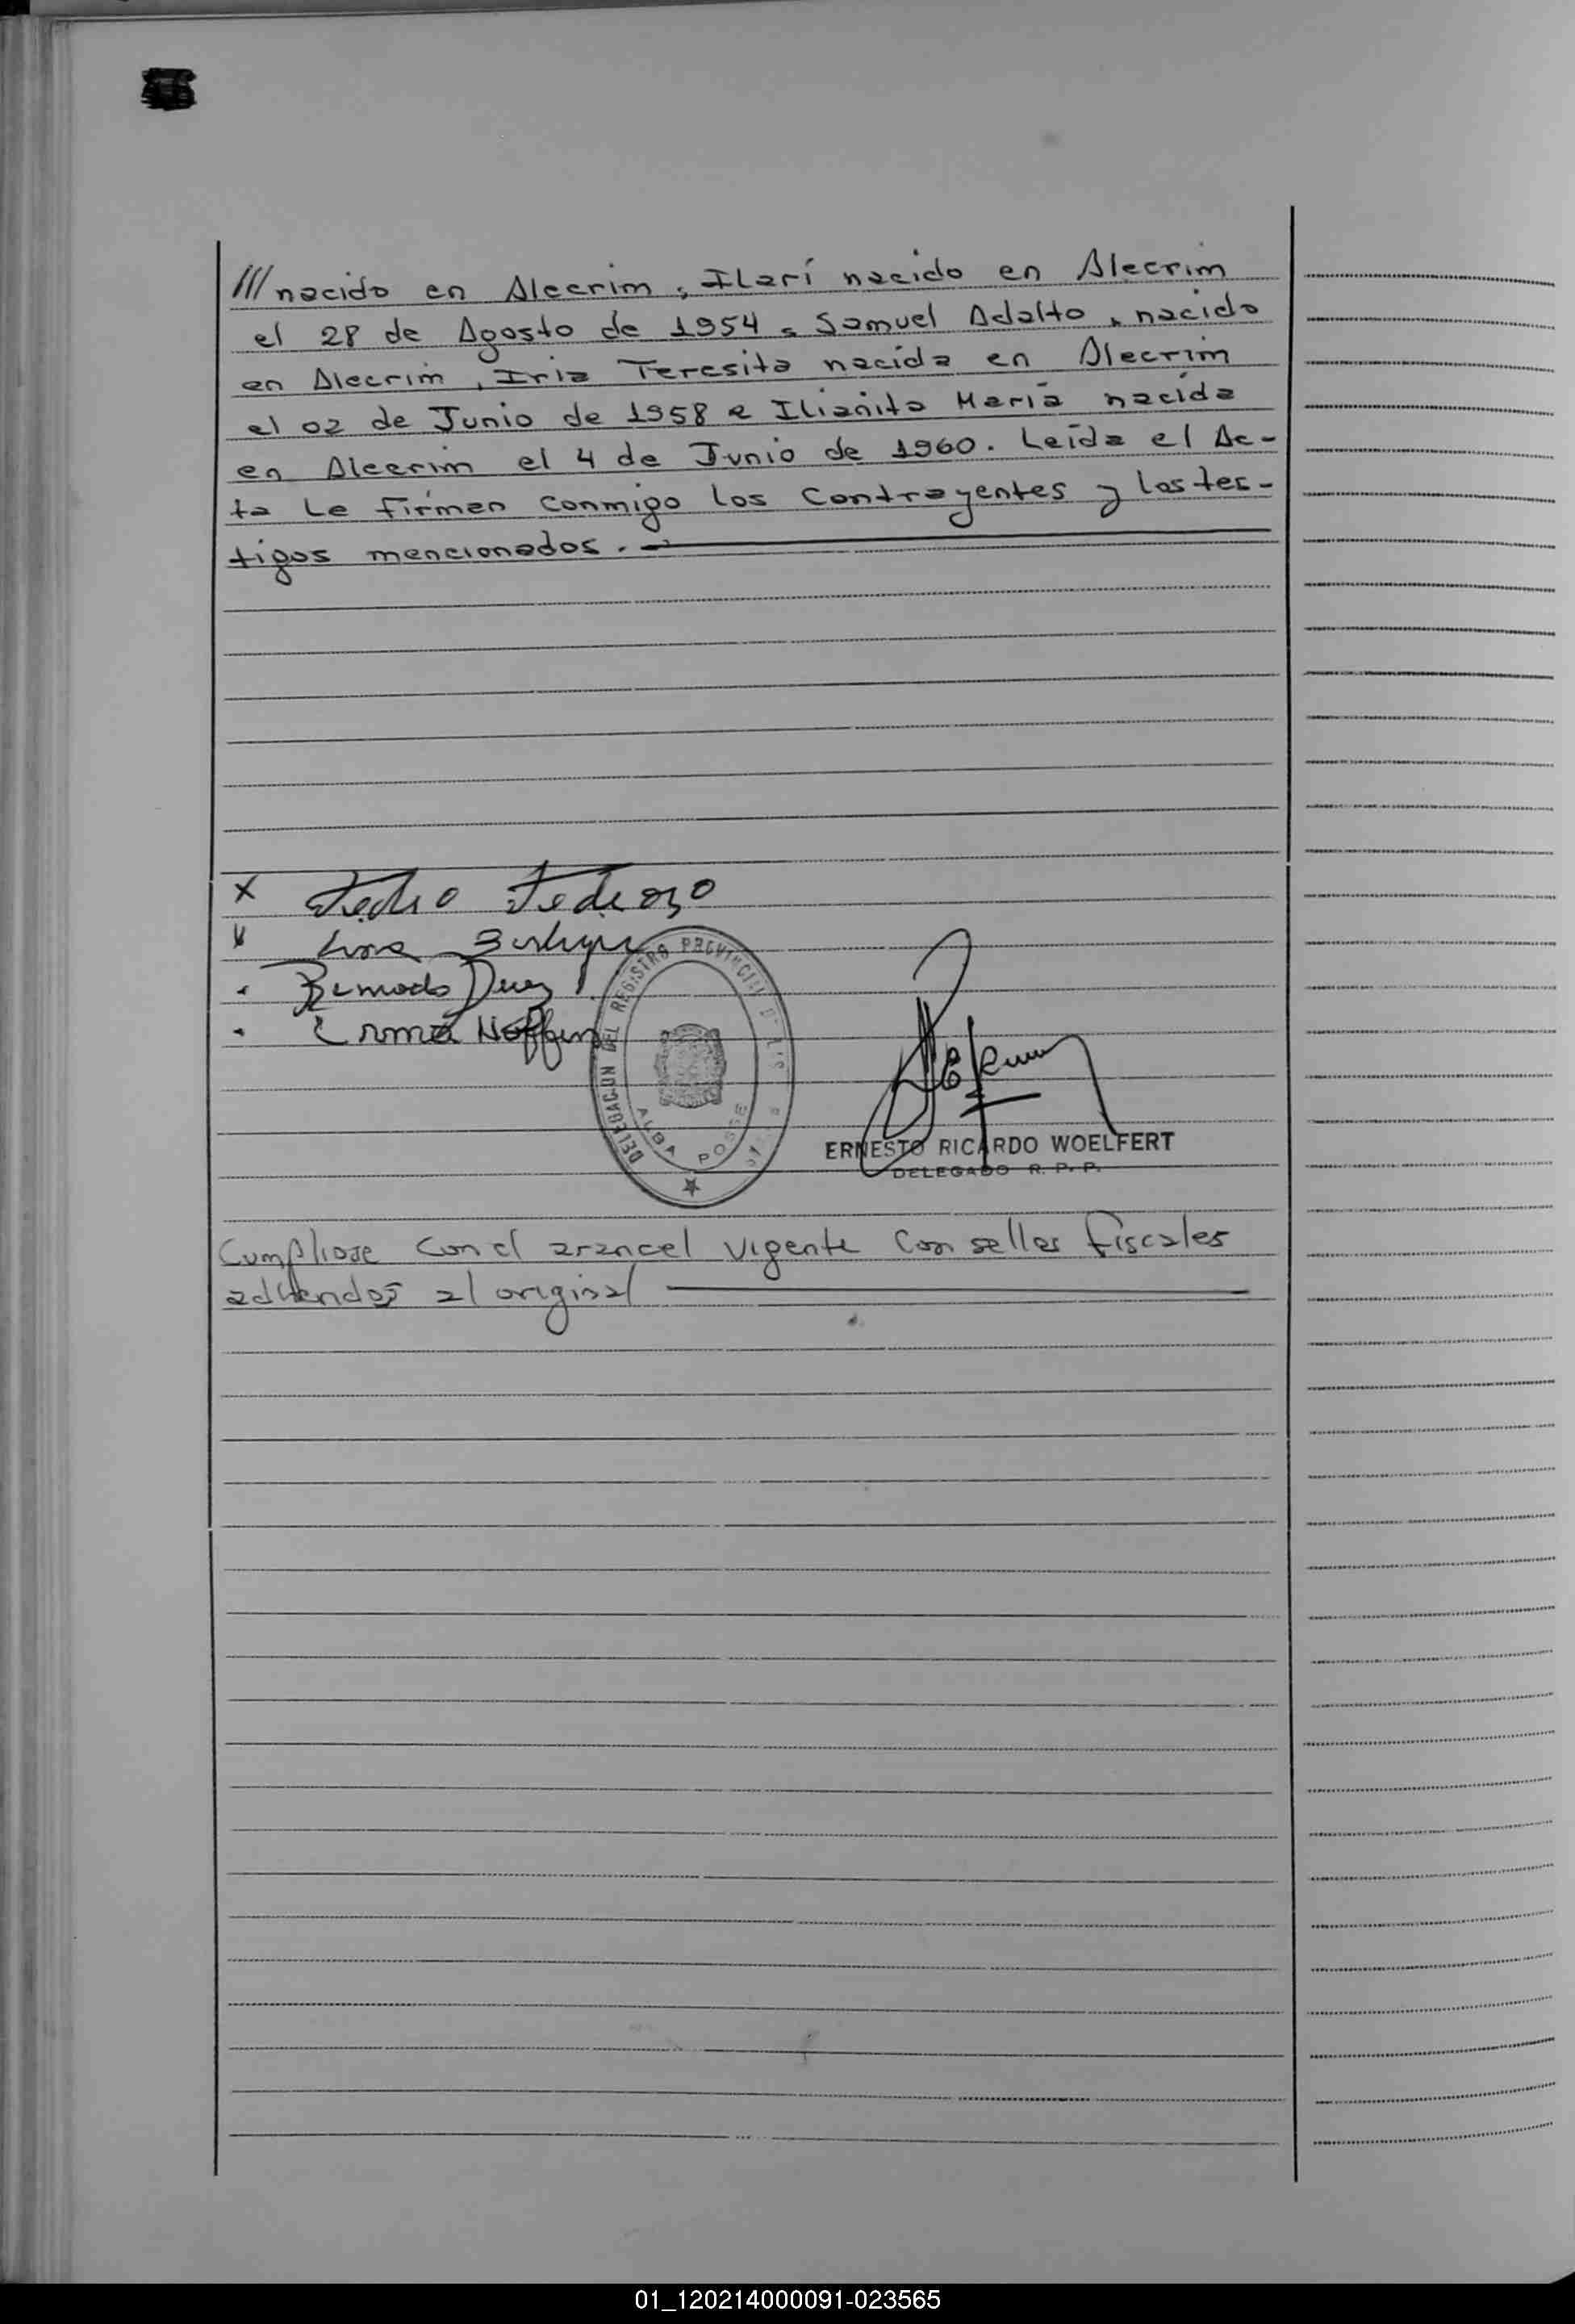 /// nacido en Alecrim, Ilarí nacido en Alecrim
el 28 de Agosto de 1954, Samuel Adalto, nacido
en Alecrim, Iria Teresita nacida en Alecrim
el 02 de Junio de 1958 e Ilianita María nacida
en Alecrim el 4 de Junio de 1960. Leída el Ac-
ta Le firman conmigo los Contrayentes y los tes-
tigos mencionados.
x Pedro Pedrozo
Bernardo
Irma
DELEGACION DEL REGISTRO PROVINCIAL
ALBA POSSE
ERNESTO RICARDO WOELFERT
DELEGADO R. P. P.
Cumpliose con el arancel vigente Con sellos fiscales
adheridos al original
01_120214000091-023565